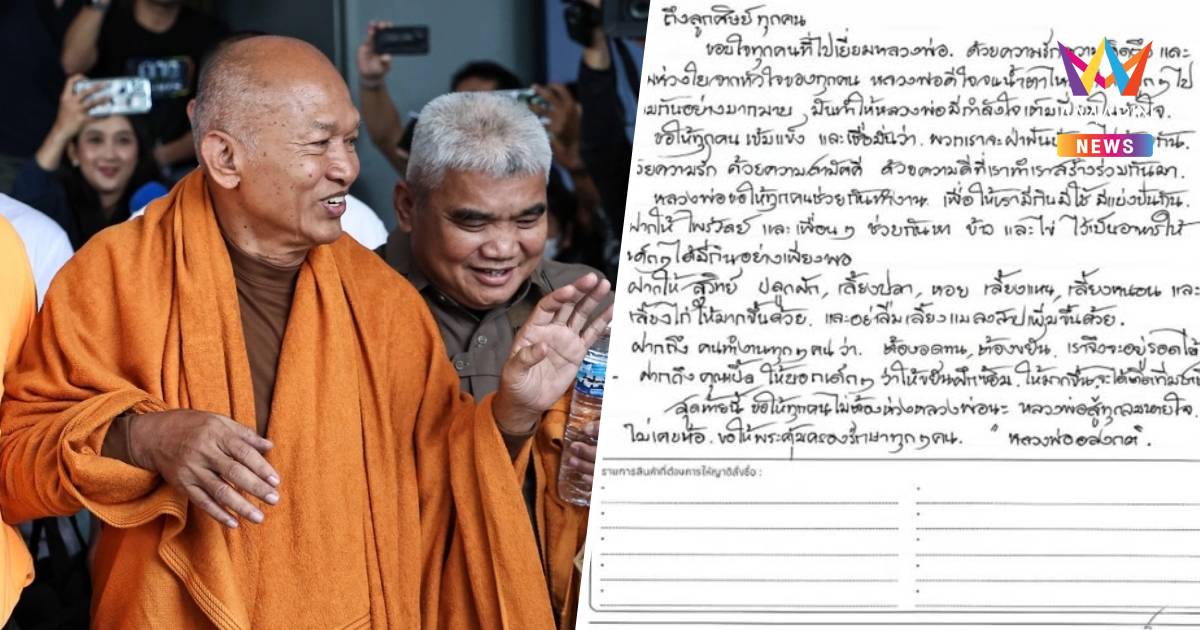 ถึงลูกศิษย์ทุกคน
ขอบใจทุกคนที่ไปเยี่ยมหลวงพ่อ. ด้วยความรัก และ
ห่วงใยจากหัวใจของทุกคน หลวงพ่อดีใจจนน้ำตาไหล ไป
กันอย่างมากมาย, มันทำให้หลวงพ่อมีกำลังใจเต็มเปี่ยมในหัวใจ.
ขอให้ทุกคน เข้มแข็ง และเชื่อมั่นว่า. พวกเราจะฝ่าฟัน กัน.
ด้วยความรัก ด้วยความสามัคคี ด้วยความดีที่เราทำเราสร้างร่วมกันมา.
หลวงพ่อขอให้ทุกคนช่วยกันทำงาน. เพื่อให้เรามีกินมีใช้ มีแบ่งปันกัน.
ฝากให้ ไพรวัลย์ และเพื่อนๆ ช่วยกันหา ข้าว และไข่ ไว้เป็นอาหารให้
เด็กๆได้มีกินอย่างเพียงพอ
ฝากให้ สุวิทย์ ปลูกผัก, เลี้ยงปลา, หอย เลี้ยงแหน, เลี้ยงหนอน และ
เลี้ยงไก่ ให้มากขึ้นด้วย. และอย่าลืมเลี้ยงแมลงสาปเพิ่มขึ้นด้วย.
ฝากถึง คนทำงานทุกๆคน ว่า. ต้องอดทน, ต้องขยัน. เราจึงจะอยู่รอดได้
- ฝากถึง คุณเปิ้ล ให้บอกเด็กๆ ว่าให้ขยันฝึกซ้อม. ให้มากขึ้น.
สุดท้ายนี้ ขอให้ทุกคนไม่ต้องห่วงหลวงพ่อนะ หลวงพ่อสู้ทุกลมหายใจ
ไม่เคยท้อ. ขอให้พระคุ้มครองรักษาทุกๆคน. "หลวงพ่ออลงกต".
รายการสินค้าที่ต้องการให้ญาติสั่งซื้อ :
NEWS